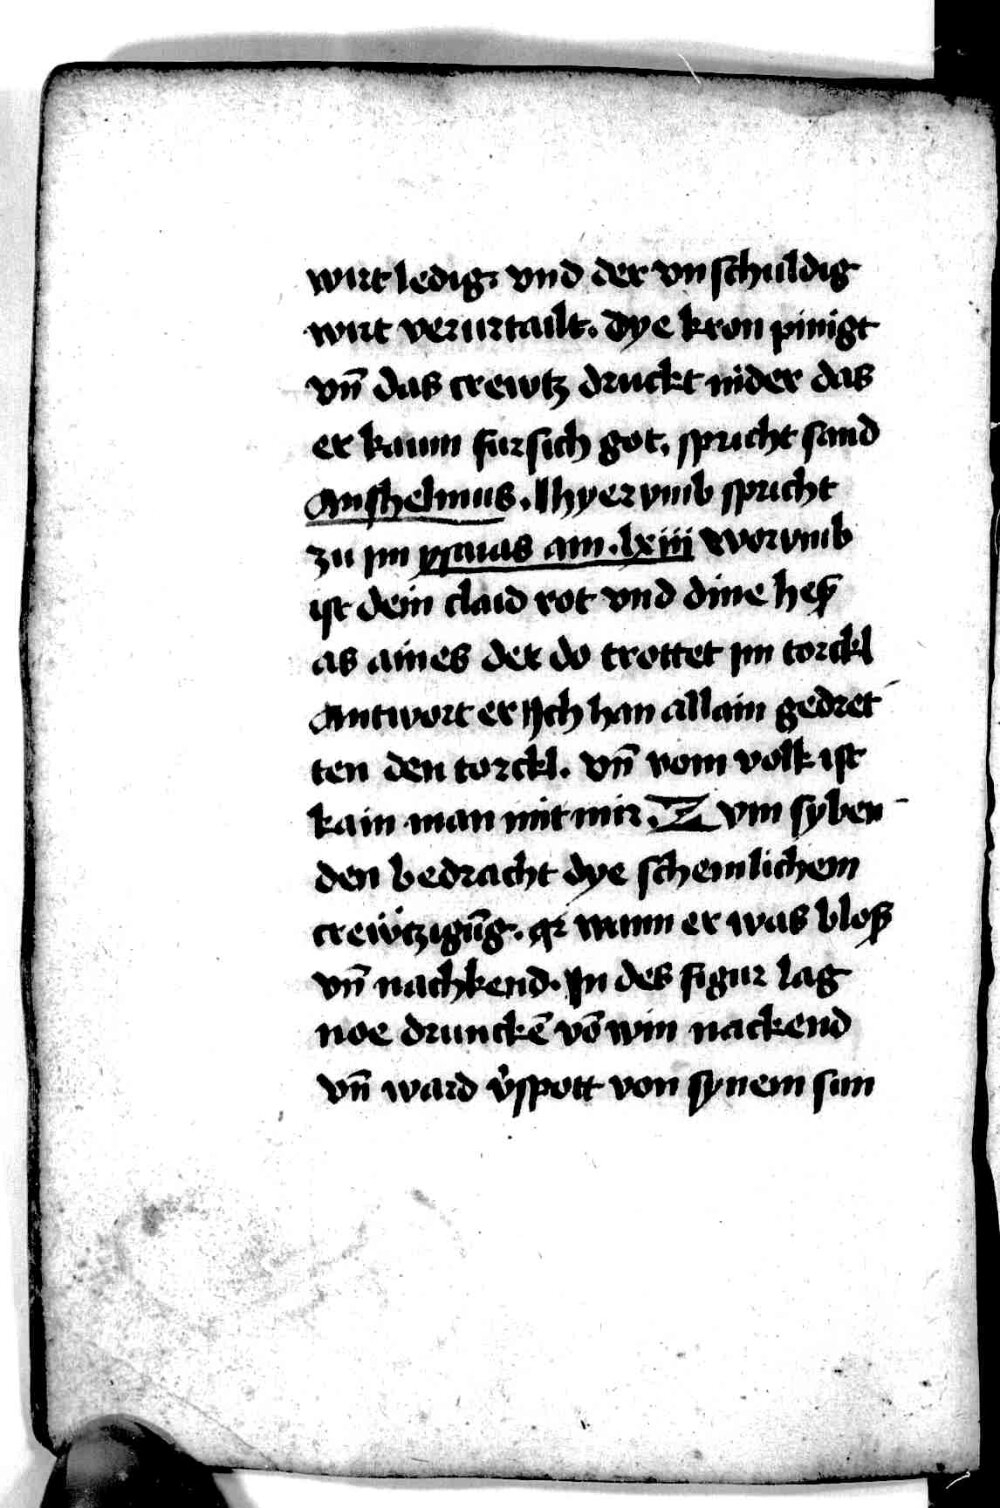 wirt ledig. vnd der vnschuldig
wirt verurtailt. Dye kron pinigt
vn̄ das crewtz druckt nider das
er kaum fursich got. spricht sand
Anshelmus. Hyervmb spricht
zu jm ysaias am .lxiii Worvmb
ist dein claid rot vnd dine heß
as aines der do trottet jm torckl
Antwort er Jch han allain gedret
ten den torckl. Vn̄ vom volk ist
kain man mit mir. Zvm syben
den bedracht dye schemlichem
crewtzigūg. wann er was bloß
vn̄ nachkend. Jn des figur lag
noe drunckē vō win nackend
vn̄ ward v̓spott von synem sun